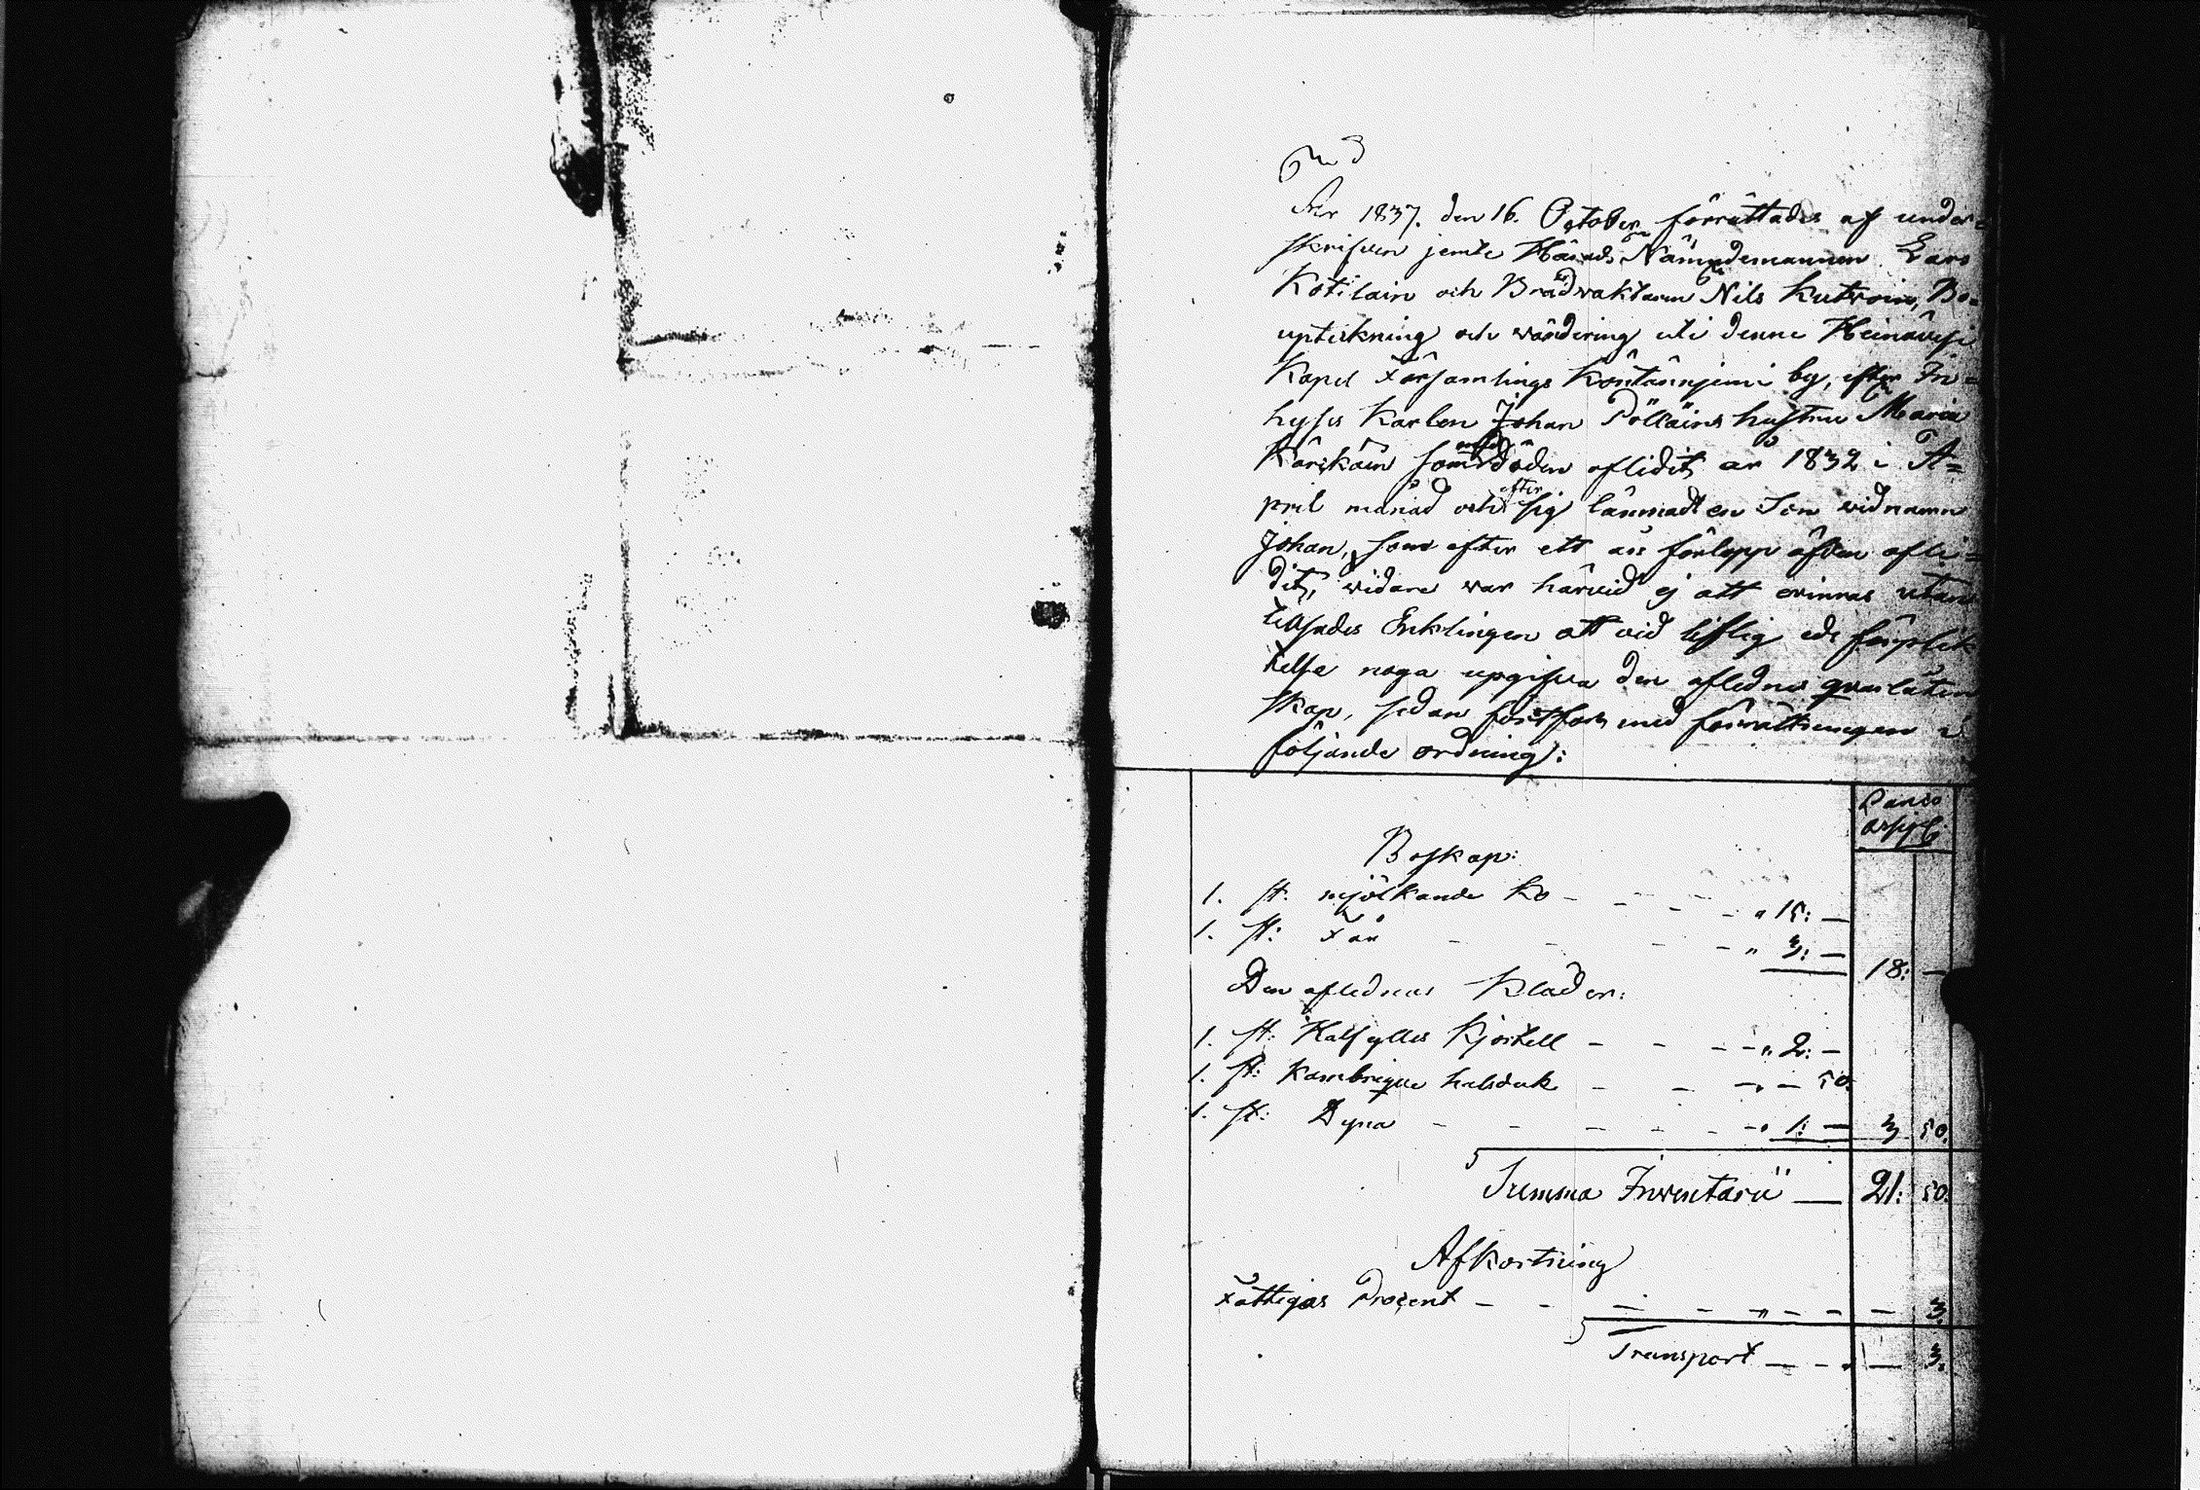 År 1837. den 16. October förrättades af under=
skrifven jemte Härads Nämndemannen Lars
Kotilain och Brandvaktaren Nils Kutvoin, Bo=
upteckning och värdering uti denne Heinävesi
Kapel Församlings Kontännjemi by, efter In=
hyses Karlen Johan Pölläins hustru Maria
Kärikäin som med döden aflidit år 1832 i A=
pril månad och efter sig lämnadt en Son vid namn
Johan, som efter ett års förlopp äfven afli=
dit, vidare var härvid ej att erinras utan
tillsades Enklingen att vid liflig eds förplik
telse noga uppgifva den aflednes qvarlåten
skap, sedan fortfors med förrättningen i
följande ordning:
Banco
assig:
Boskap:
1. st: mjölkande Ko - - - - " 15: —
1. st: Får - - - - " 3: — 18: —
Den aflednas Kläder:
1. st: Halfylles Kjortell - - - " 2: —
1. st: Kambrigue halsduk - - - " — 50.
1. st: Dyna - - - - - - " 1: — 3 50.
Summa Inventarii — 21: 50.
Afkortning
Fattigas Procent - - - - " - - — 3.
Transport — - - — 3.